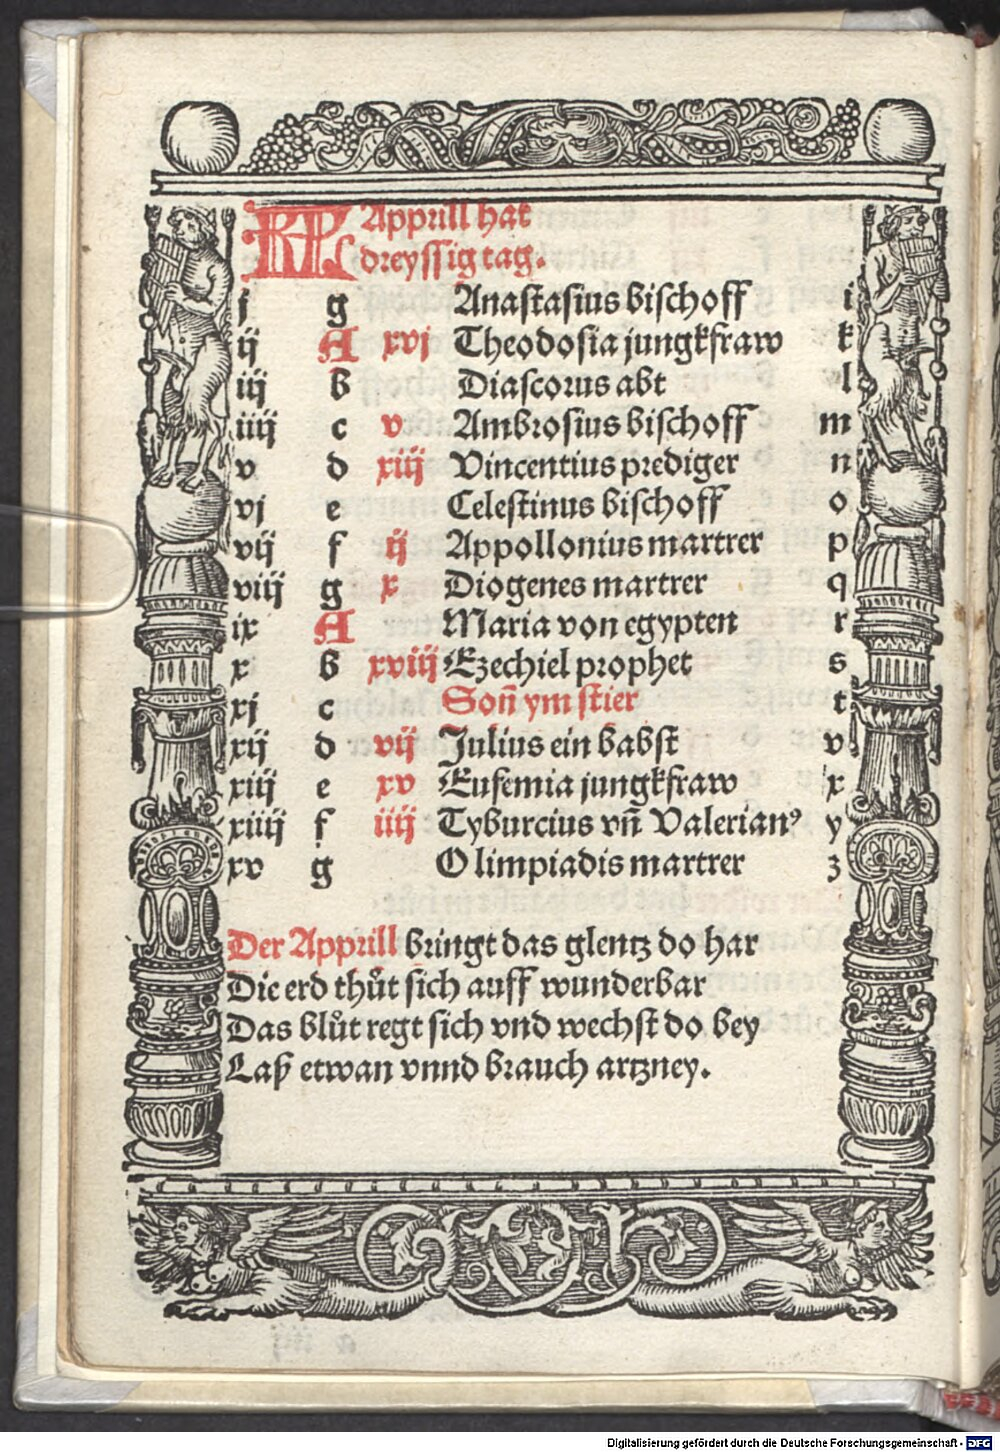 KL Apprill hat
dreyssig tag.
j g Anastasius bischoff i
ij A xvj Theodosia jungkfraw k
iij b Diascorus abt l
iiij c v Ambrosius bischoff m
v d xiij Vincentius prediger n
vj e Celestinus bischoff o
vij f ij Appollonius martrer p
viij g x Diogenes martrer q
ix A Maria von egypten r
x b xviij Ezechiel prophet s
xj c Soñ ym stier t
xij d vij Julius ein babst v
xiij e xv Eufemia jungkfraw x
xiiij f iiij Tyburcius vñ Valerianꝰ y
xv g Olimpiadis martrer z
Der Apprill bringt das glentz do har
Die erd thůt sich auff wunderbar
Das blůt regt sich vnd wechst do bey
Laß etwan vnnd brauch artzney.
Digitalisierung gefördert durch die Deutsche Forschungsgemeinschaft - DFG